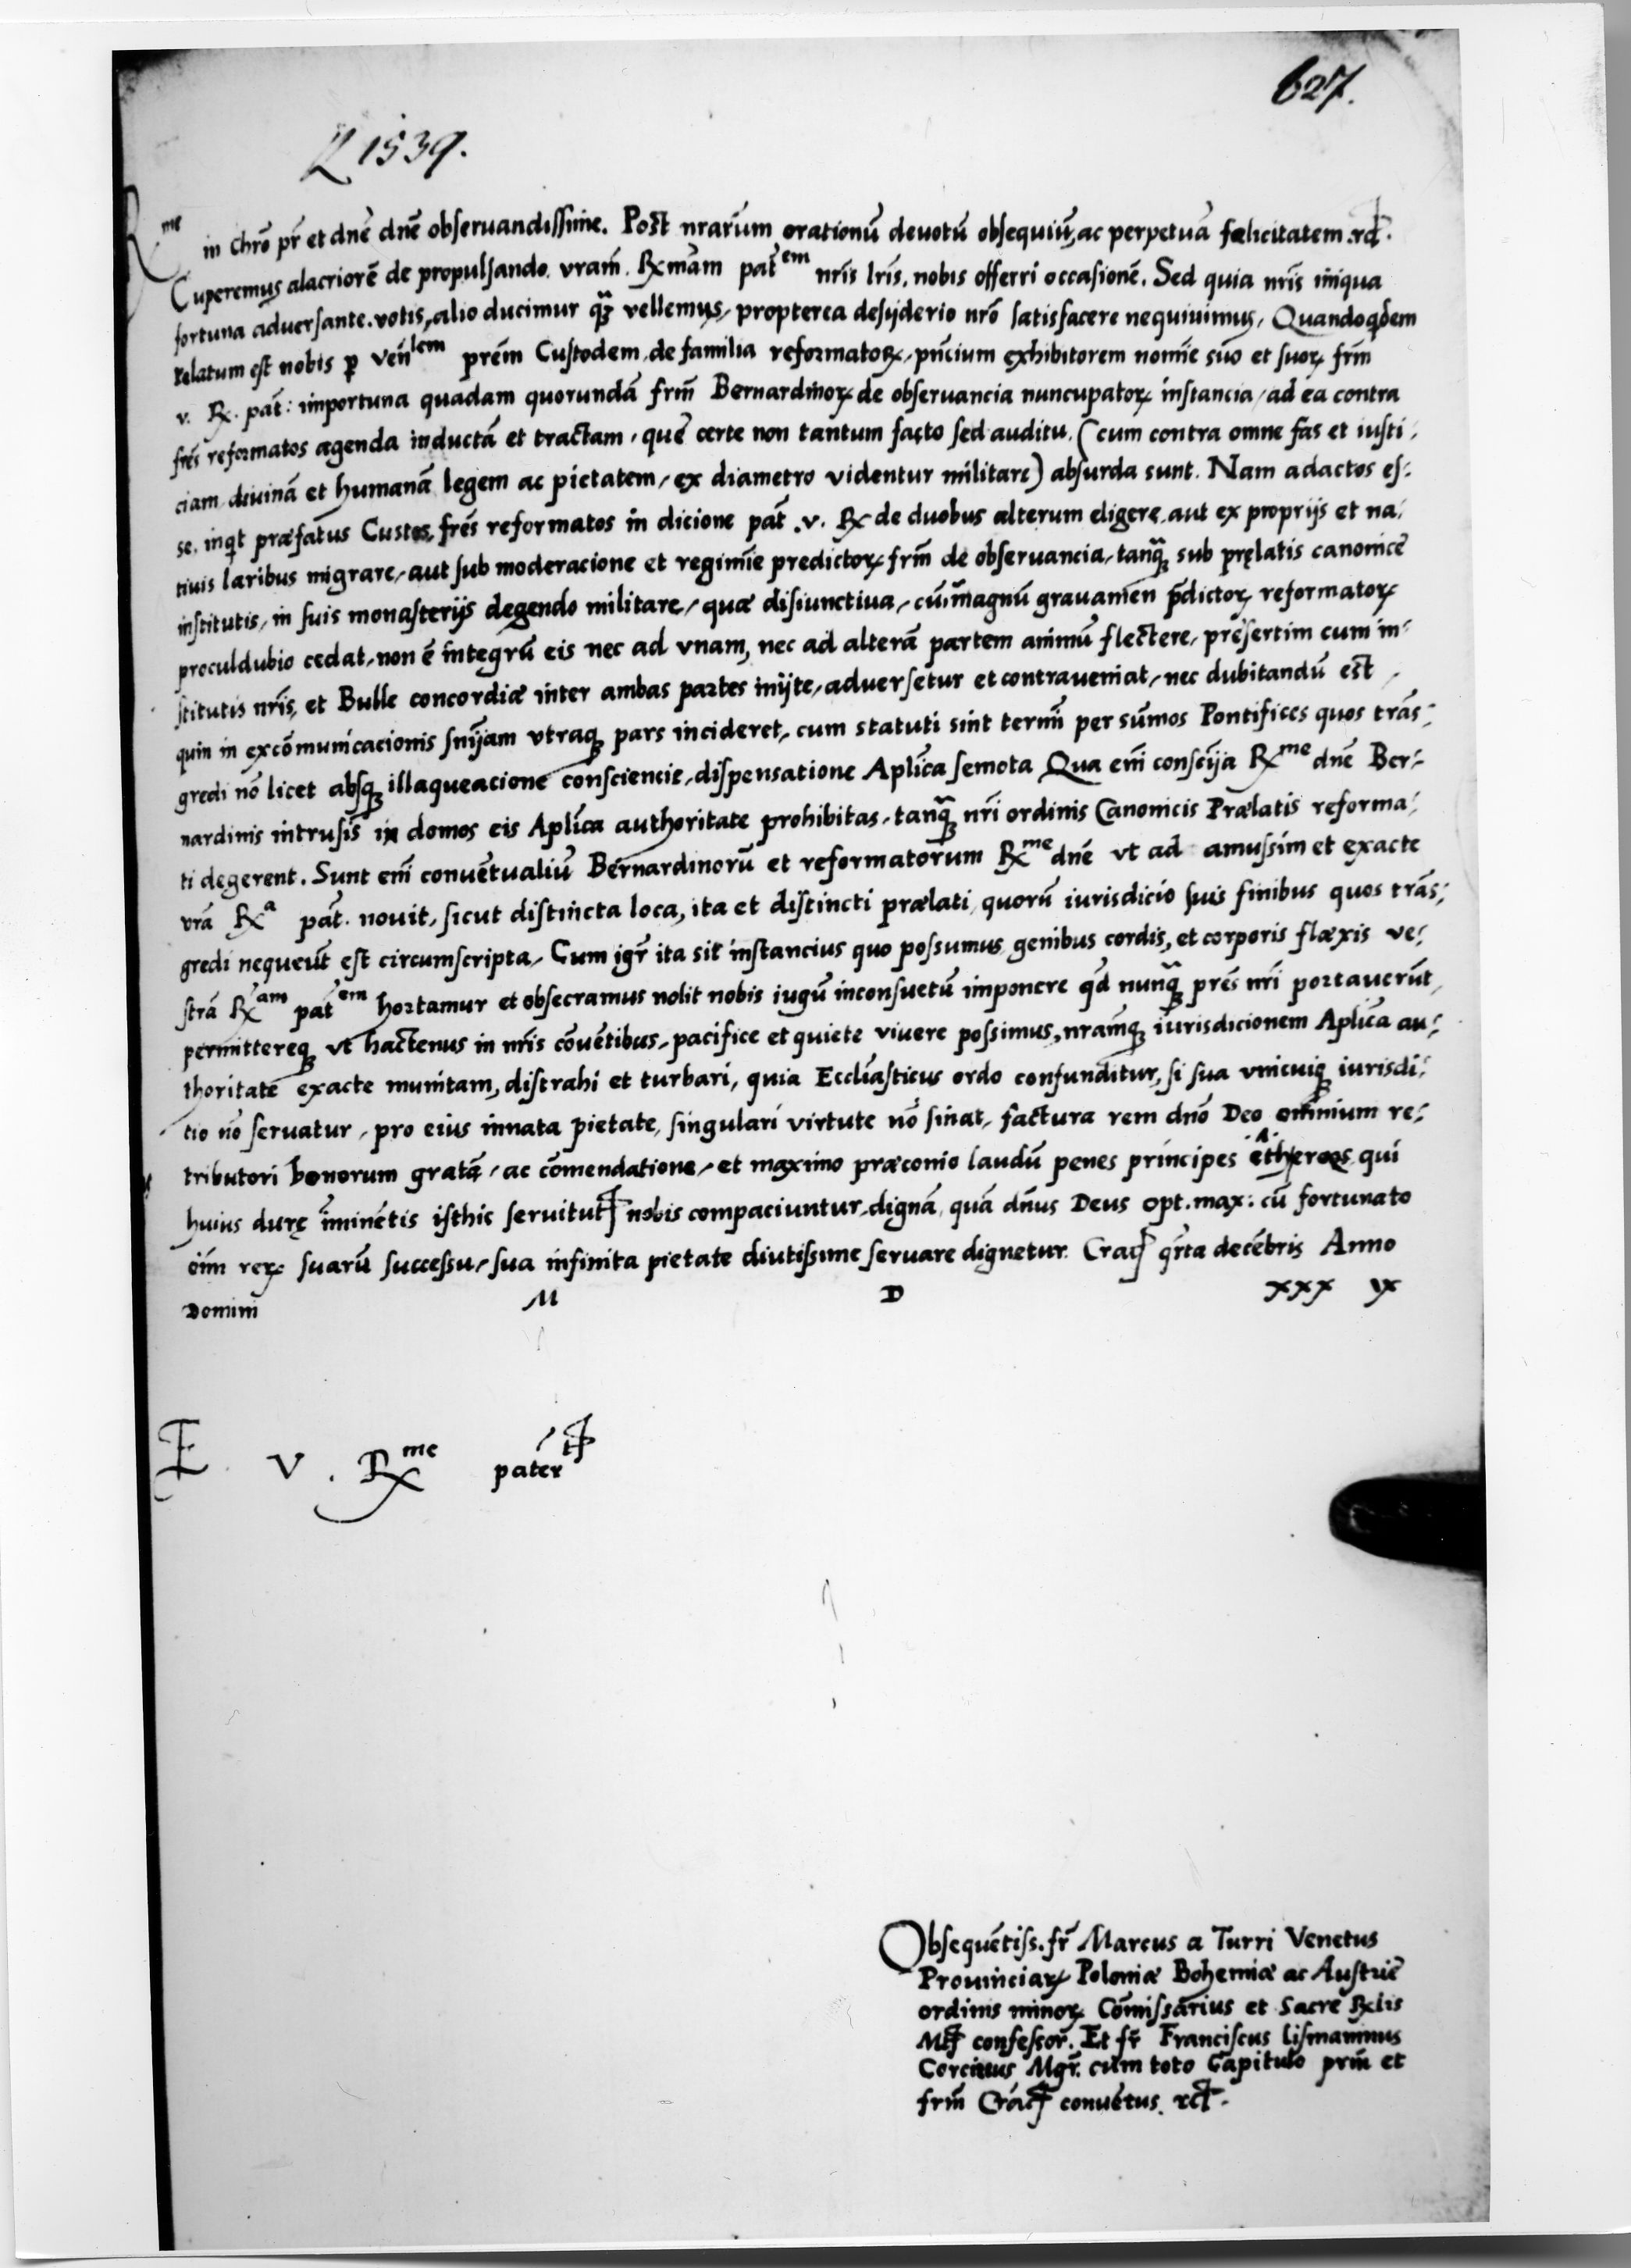 627.
1539.
Rme in Chro pr et dne dne obseruandissime. Post nrarum orationu deuotu obsequiu, ac perpetua felicitatem. rc.
Cuperemus alacriore de propulsando. vram. Rmam patem nris lris, nobis offerri occasione. Sed quia nris iniqua
fortuna aduersante. votis, alio ducimur q3 vellemus, propterea desyderio nro satisfacere nequiuimus, Quandoqdem
relatum est nobis p venlem prem Custodem, de familia reformator, pncium exhibitorem nomie suo et suor frm
v. R. pat: importuna quadam quorunda frm Bernardinor de obseruancia nuncupator instancia, ad ea contra
fres reformatos agenda inducta et tractam, que certe non tantum facto sed auditu. (cum contra omne fas et iusti:
ciam, diuina et humana legem ac pietatem, ex diametro videntur militare) absurda sunt. Nam adactos es:
se. inqt præfatus Custos, fres reformatos in dicione pat. v. R de duobus alterum eligere. aut ex proprijs et na:
tiuis laribus migrare, aut sub moderacione et regimie predictor frm de obseruancia, tanq3 sub prelatis canonice
institutis, in suis monasterijs degendo militare, quæ disiunctiua, cu magnu grauamen pdictor reformator
proculdubio cedat, non e integru eis nec ad vnam, nec ad altera partem animu flectere, presertim cum in:
stitutis nris, et Bulle concordiæ inter ambas partes inijte, aduersetur et contraueniat, nec dubitandu est
quin in excomunicacionis snijam vtraq3 pars incideret, cum statuti sint termi per sumos Pontifices quos tras:
gredi no licet absq3 illaqueacione consciencie, dispensatione Aplica semota Qua em conscija Rme dne Ber:
nardinis intrusis in domos eis Aplica authoritate prohibitas, tanq3 nri ordinis Canonicis Prælatis reforma:
ti degerent. Sunt em conuetualiu Bernardinoru et reformatorum Rme dne vt ad amussim et exacte
vra Ra pat. nouit, sicut distincta loca, ita et distincti prælati, quoru iurisdicio suis finibus quos tras:
gredi nequeut est circumscripta, Cum igr ita sit instancius quo possumus, genibus cordis, et corporis flæxis ve:
stra Ram patem hortamur et obsecramus nolit nobis iugu inconsuetu imponere qd nunq3 pres nri portauerut,
permittereq3 vt hactenus in nris couetibus, pacifice et quiete viuere possimus, nramq3 iurisdicionem Aplica au:
thoritate exacte munitam, distrahi et turbari, quia Eccliasticus ordo confunditur, si sua vnicuiq3 iurisdi:
tio no seruatur, pro eius innata pietate, singulari virtute no sinat, factura rem dno Deo omnium re:
tributori bonorum grata, ac comendatione, et maximo præconio laudu penes principes ethereos qui
huius dure iminetis isthic seruitut nobis compaciuntur, digna, qua dnus Deus opt. max: cu fortunato
oim rer suaru successu, sua infinita pietate diutissime seruare dignetur. Crac qrta decebris Anno
Domini M D xxx ix
E. V. Rme pater
Obsequetiss. fr Marcus a Turri Venetus
Prouinciar Poloniæ Bohemiæ ac Austrie
ordinis minor Comissarius et Sacre Rlis
Mt confessor. Et fr Franciscus lismaninus
Corcirus Mgr. cum toto Capitulo prm et
frm Crac conuetus. rc.